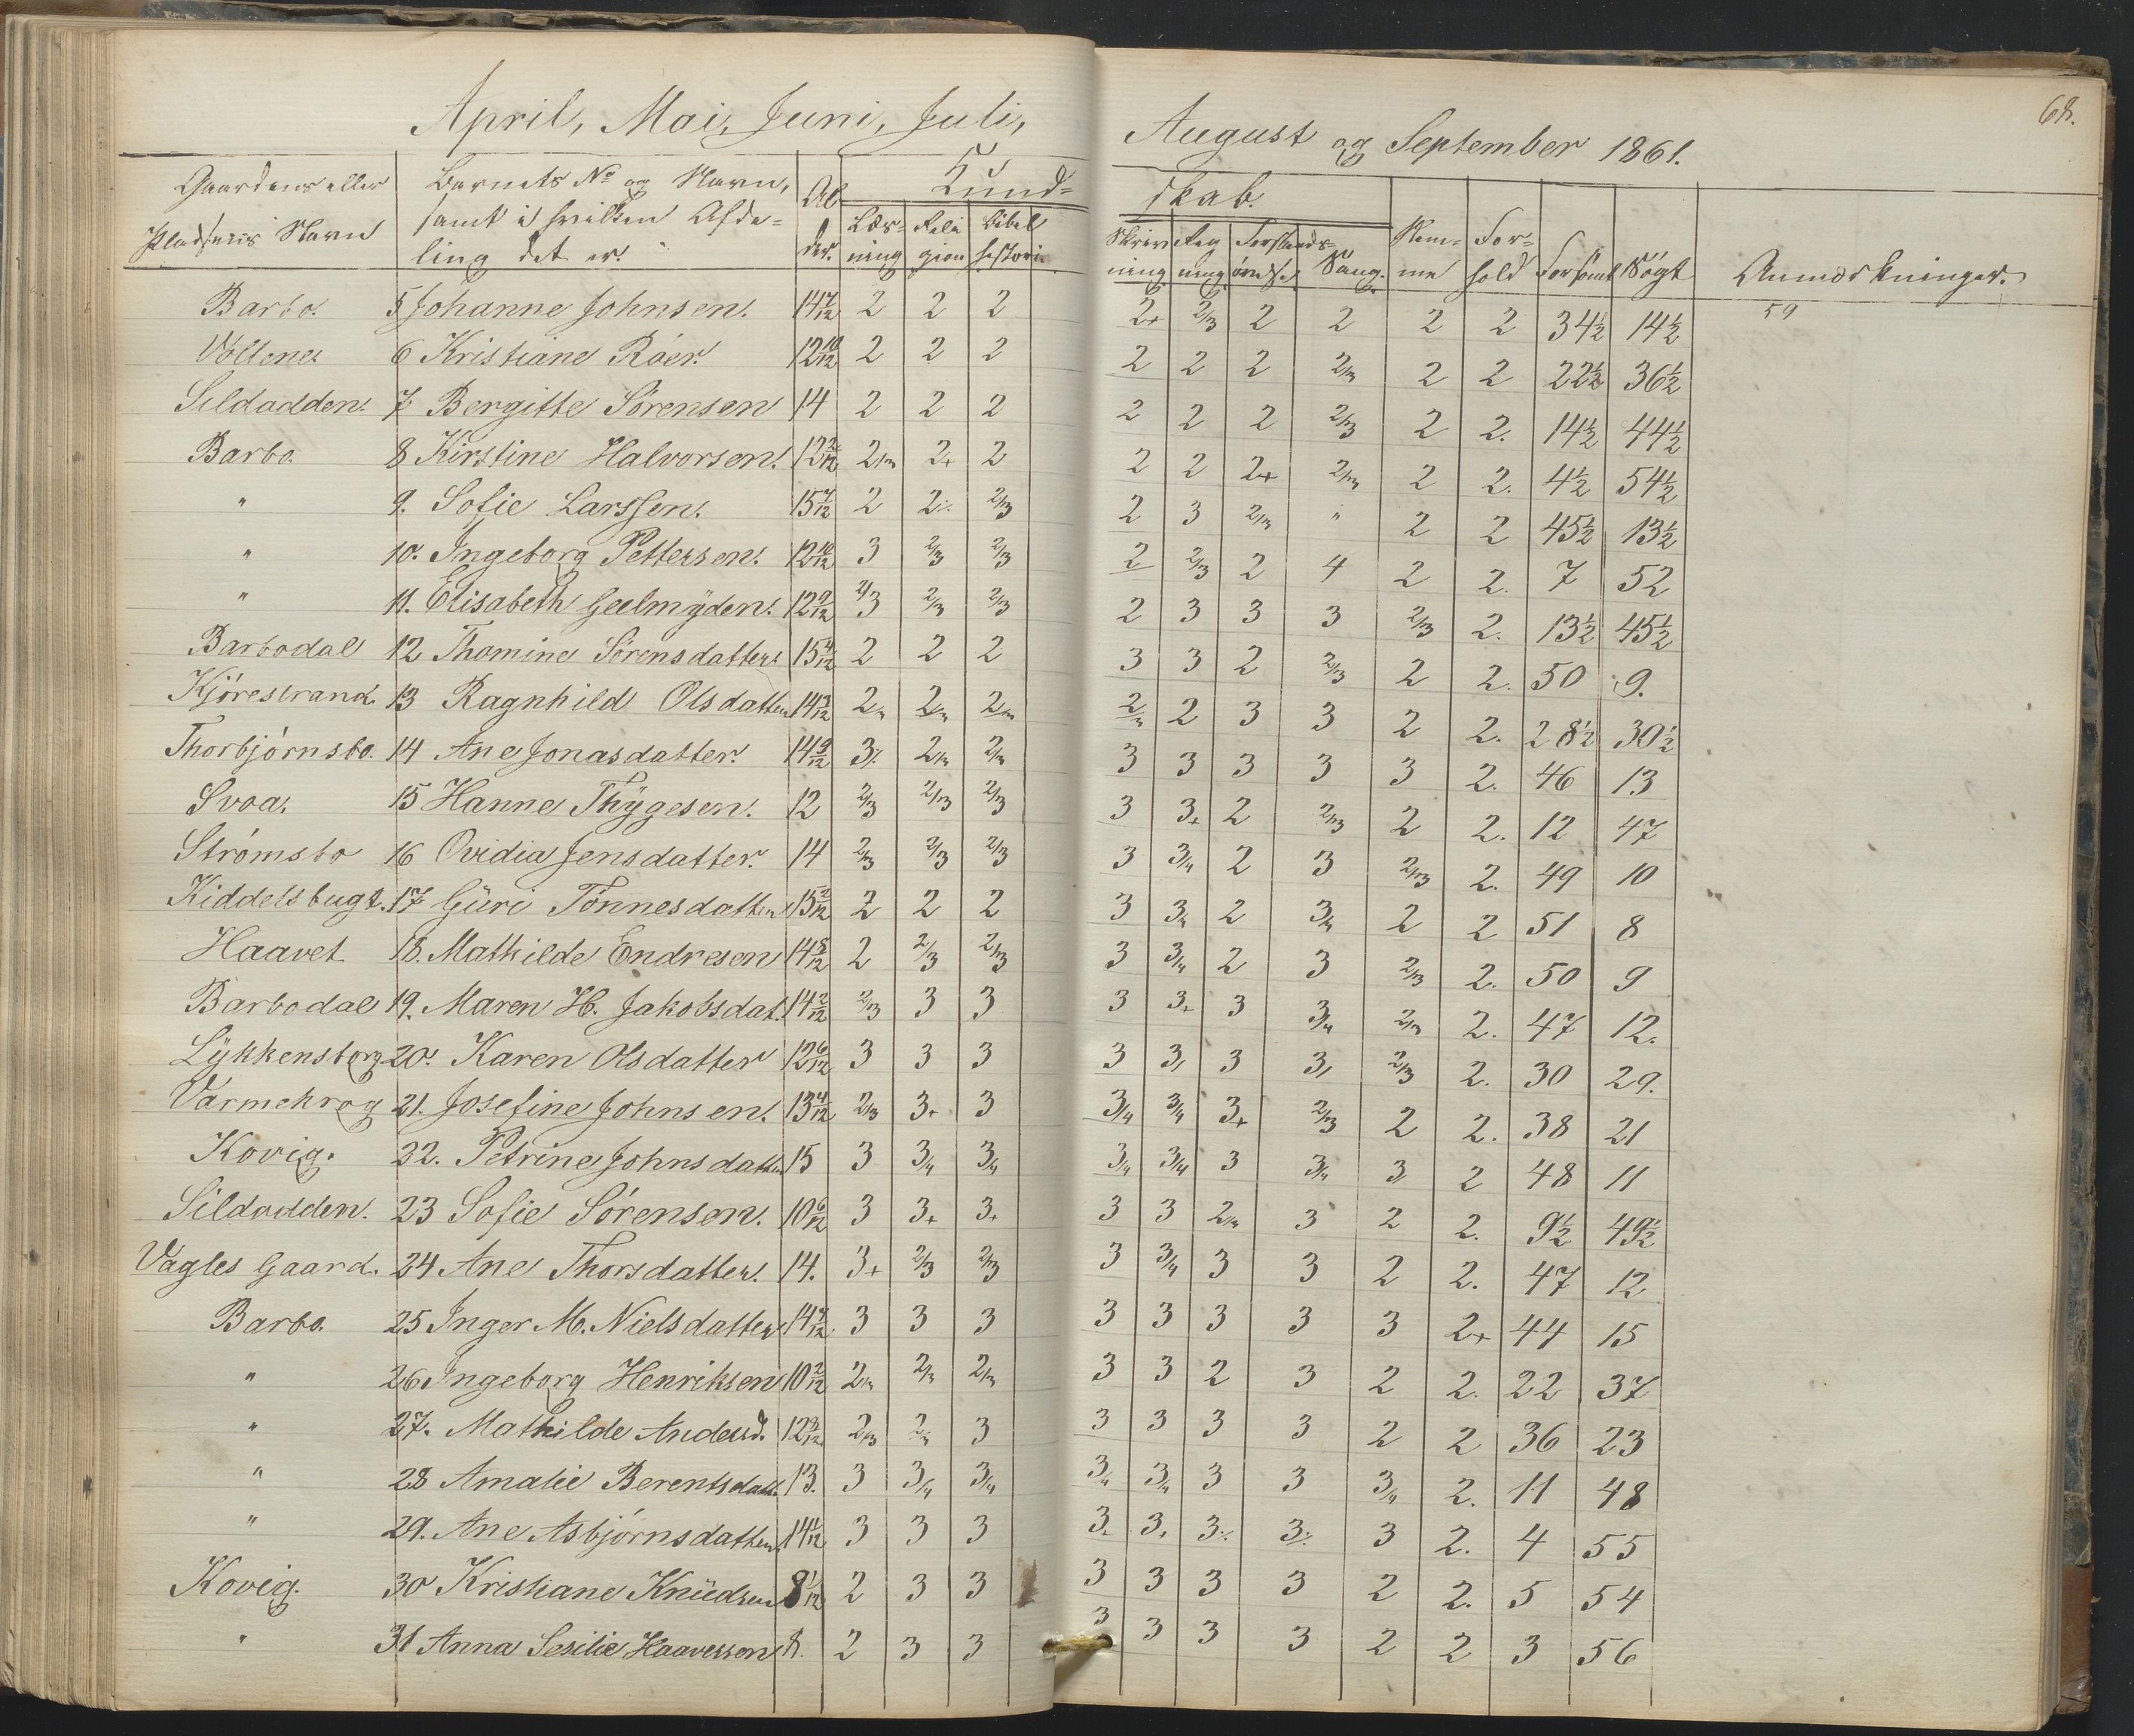 April, Mai, Juni, Juli,
Gaardens eller Pladsens Navn | Barnets No og Navn, samt i hvilken Afdeling det er. | Alder. | Kund=
Læsning | Religion | Bibelhistorie
Barbo. 5 Johanne Johnsen. 14 7/12 2 2 2
Vollene. 6 Kristiane Röer. 12 10/12 2 2 2
Sildodden. 7 Bergitte Sörensen 14 2 2 2
Barbo. 8 Kirstine Halvorsen. 12 2/12 2/3 2+ 2
" 9. Sofie Larssen. 15 7/12 2 2÷ 2/3
" 10. Ingeborg Pettersen. 12 10/12 3 2/3 2/3
" 11. Elisabeth Geelmÿden. 12 9/12 2/3 2/3 2/3
Barbodal 12 Thomine Sörensdatter 15 4/12 2 2 2
Kjörestrand. 13 Ragnhild Olsdatter 14 3/12 2/3 2/3 2/3
Thorbjörnsbo. 14 Ane Jonasdatter. 14 9/12 3÷ 2/3 2/3
Svoa. 15 Hanne Thÿgesen. 12 2/3 2/3 2/3
Strömsbo 16 Ovidia Jensdatter. 14 2/3 2/3 2/3
Kiddelsbugt. 17 Güri Tönnesdatter 15 2/12 2 2 2
Haavet 18. Mathilde Endresen 14 8/12 2 2/3 2/3
Barbodal 19. Maren H. Jakobsdat. 14 2/12 2/3 3 3
Lÿkkensborg 20. Karen Olsdatter 12 6/12 3 3 3
Varmekrog 21. Josefine Johnsen. 13 4/12 2/3 3+ 3
Kovig. 22. Petrine Johnsdatter 15 3 3/4 3/4
Sildodden. 23 Sofie Sörensen. 10 6/12 3 3+ 3+
Vagles Gaard. 24 Ane Thorsdatter. 14. 3+ 2/3 2/3
Barbo. 25 Inger M. Nielsdatter 3 3 3
" 26 Ingeborg Henriksen 10 2/12 2/3 2/3 2/3
" 27. Mathilde Andersd. 2/3 2/3 3
" 28 Amalie Berentsdatt. 13. 3 3/4 3/4
" 29. Ane Asbjörnsdatter 14 1/12 3 3 3
Kovig. 30 Kristiane Knüdsen 8 1/12 2 3 3
" 31 Anna Sesilie Haaversen 8. 2 3 3
68.
August og September 1861.
skab.
Skrivning | Regning | Forstands-övelse | Sang. | Nemme | Forhold | Forsömt | Sögt | Anmærkninger.
2+ 2/3 2 2 2 2 34½ 14½ 59
2 2 2 2/3 2 2 22½ 36½
2 2 2 2/3 2 2. 14½ 44½
2 2 2+ 2/3 2 2. 4½ 54½
2 3 2/3 " 2 2 45½ 13½
2 2/3 2 4 2 2. 7 52
2 3 3 3 2/3 2. 13½ 45½
3 3 2 2/3 2 2. 50 9.
2/3 2 3 3 2 2. 28½ 30½
3 3 3 3 3 2. 46 13
3 3+ 2 2/3 2 2. 12 47
3 3/4 2 3 2/3 2. 49 10
3 3/4 2 3/4 2 2 51 8
3 3/4 2 3 2/3 2. 50 9
3 3+ 3 3/4 2/3 2. 47 12.
3 3 3 3 2/3 2. 30 29.
3/4 3/4 3+ 2/3 2 2. 38 21
3/4 3/4 3 3/4 3 2 48 11
3 3 2/3 3 2 2. 9½ 49½
3 3/4 3 3 2 2. 47 12
3 3 3 3 3 2+ 44 15
3 3 2 3 2 2. 22 37
3 3 3 3 2 2 36 23
3/4 3/4 3 3 3/4 2. 11 48
3. 3+ 3÷ 3÷ 3 2. 4 55
3 3 3 3 2 2. 5 54
3 3 3 3 2 2 3 56